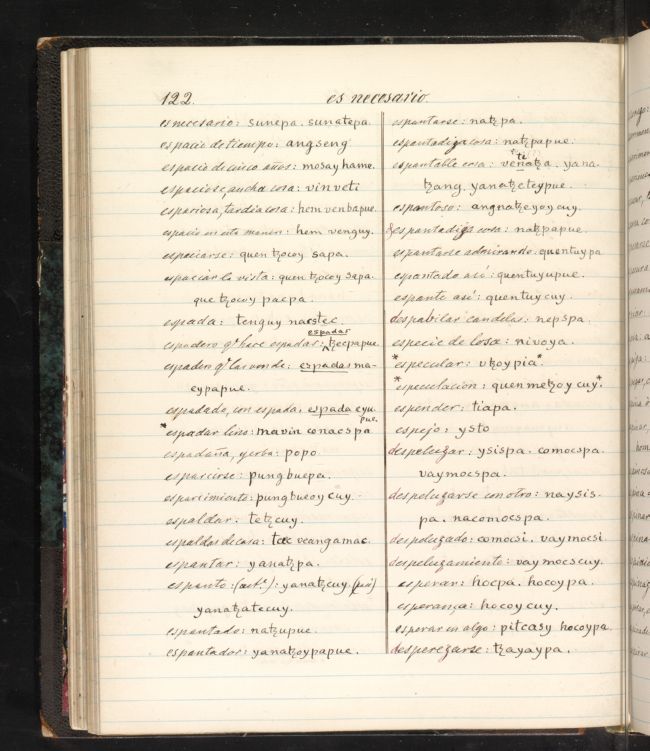 122.
es necesario.
es necesario: sunepa. sunatepa.
espacio de tiempo: angseng
espacio de cinco años: mosay hame.
espaciosa, ancha cosa: vin veti
espaciosa, tardia cosa: hem venbapue.
espacio en esta manera: hem venguy.
espaciarse: quen tzocoy sapa.
espaciar la vista: quen tzocoy sapa.
que tzocuy pacpa.
espada: tenguy nacstec.
espadas
espadero qe hace espadas: tzecpapue.
espadero qe las vende: espadas ma-
cypapue.
espadado, con espada. espada cyu-
pue.
*espadar lino: mavin conacspa
espadaña, yerba: popo
esparcirse: pungbuepa.
esparcimiento: pungbueoy cuy.
espaldar: tetzcuy.
espaldas de casa: tac veangamac.
espantar: yanatzpa.
espanto: (act.o): yanatzcuy. (pas)
yanatzatecuy.
espantado: natzupue.
espantador: yanatzoypapue.
espantarse: natzpa.
espantadiça cosa: natzpapue.
ti
espantable cosa: veñatza. yana-
tzang. yanatzeteypue.
espantoso: angnatzeyoy cuy.
espantadiza cosa: natzpapue.
espantarse admirando: quentuypa
espantado así: quentuyupue.
espante así: quentuy cuy.
despabilar candelas: nepspa.
especie de losa: nivoya.
*especular: utzoypia*.
*especulacion: quen metzoy cuy*.
espender: tiapa.
espejo: ysto
despeluzar: ysispa. comocspa.
vaymocspa.
despeluzarse con otro: naysis-
pa. nacomocspa.
despeluzado: comocsi. vaymocsi
despeluzamiento: vaymocscuy.
esperar: hocpa. hocoypa.
esperança: hocoy cuy.
esperar en algo: pitcasy hocoypa.
desperezarse: tzayaypa.